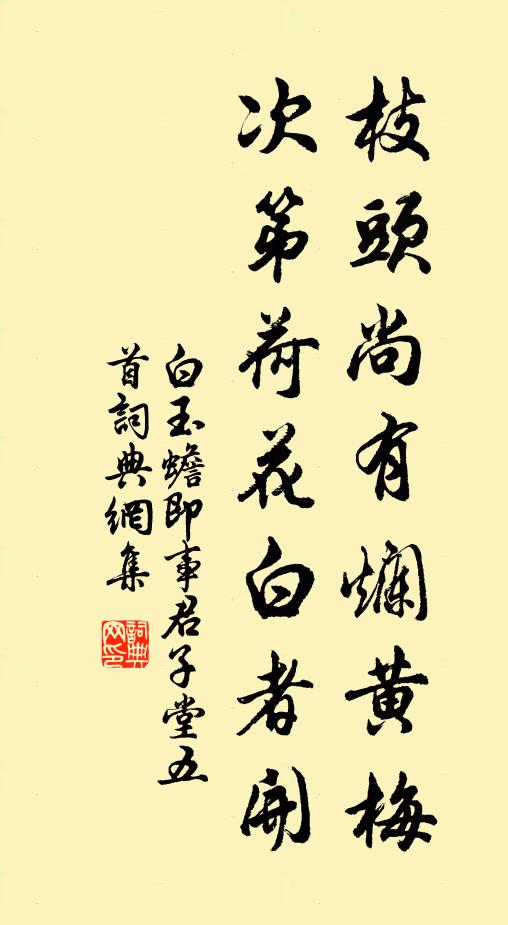 枝頭尚有爛黄梅
次第荷花白者開
白玉蟾即事君子堂五
首詞典網集
詞典網印